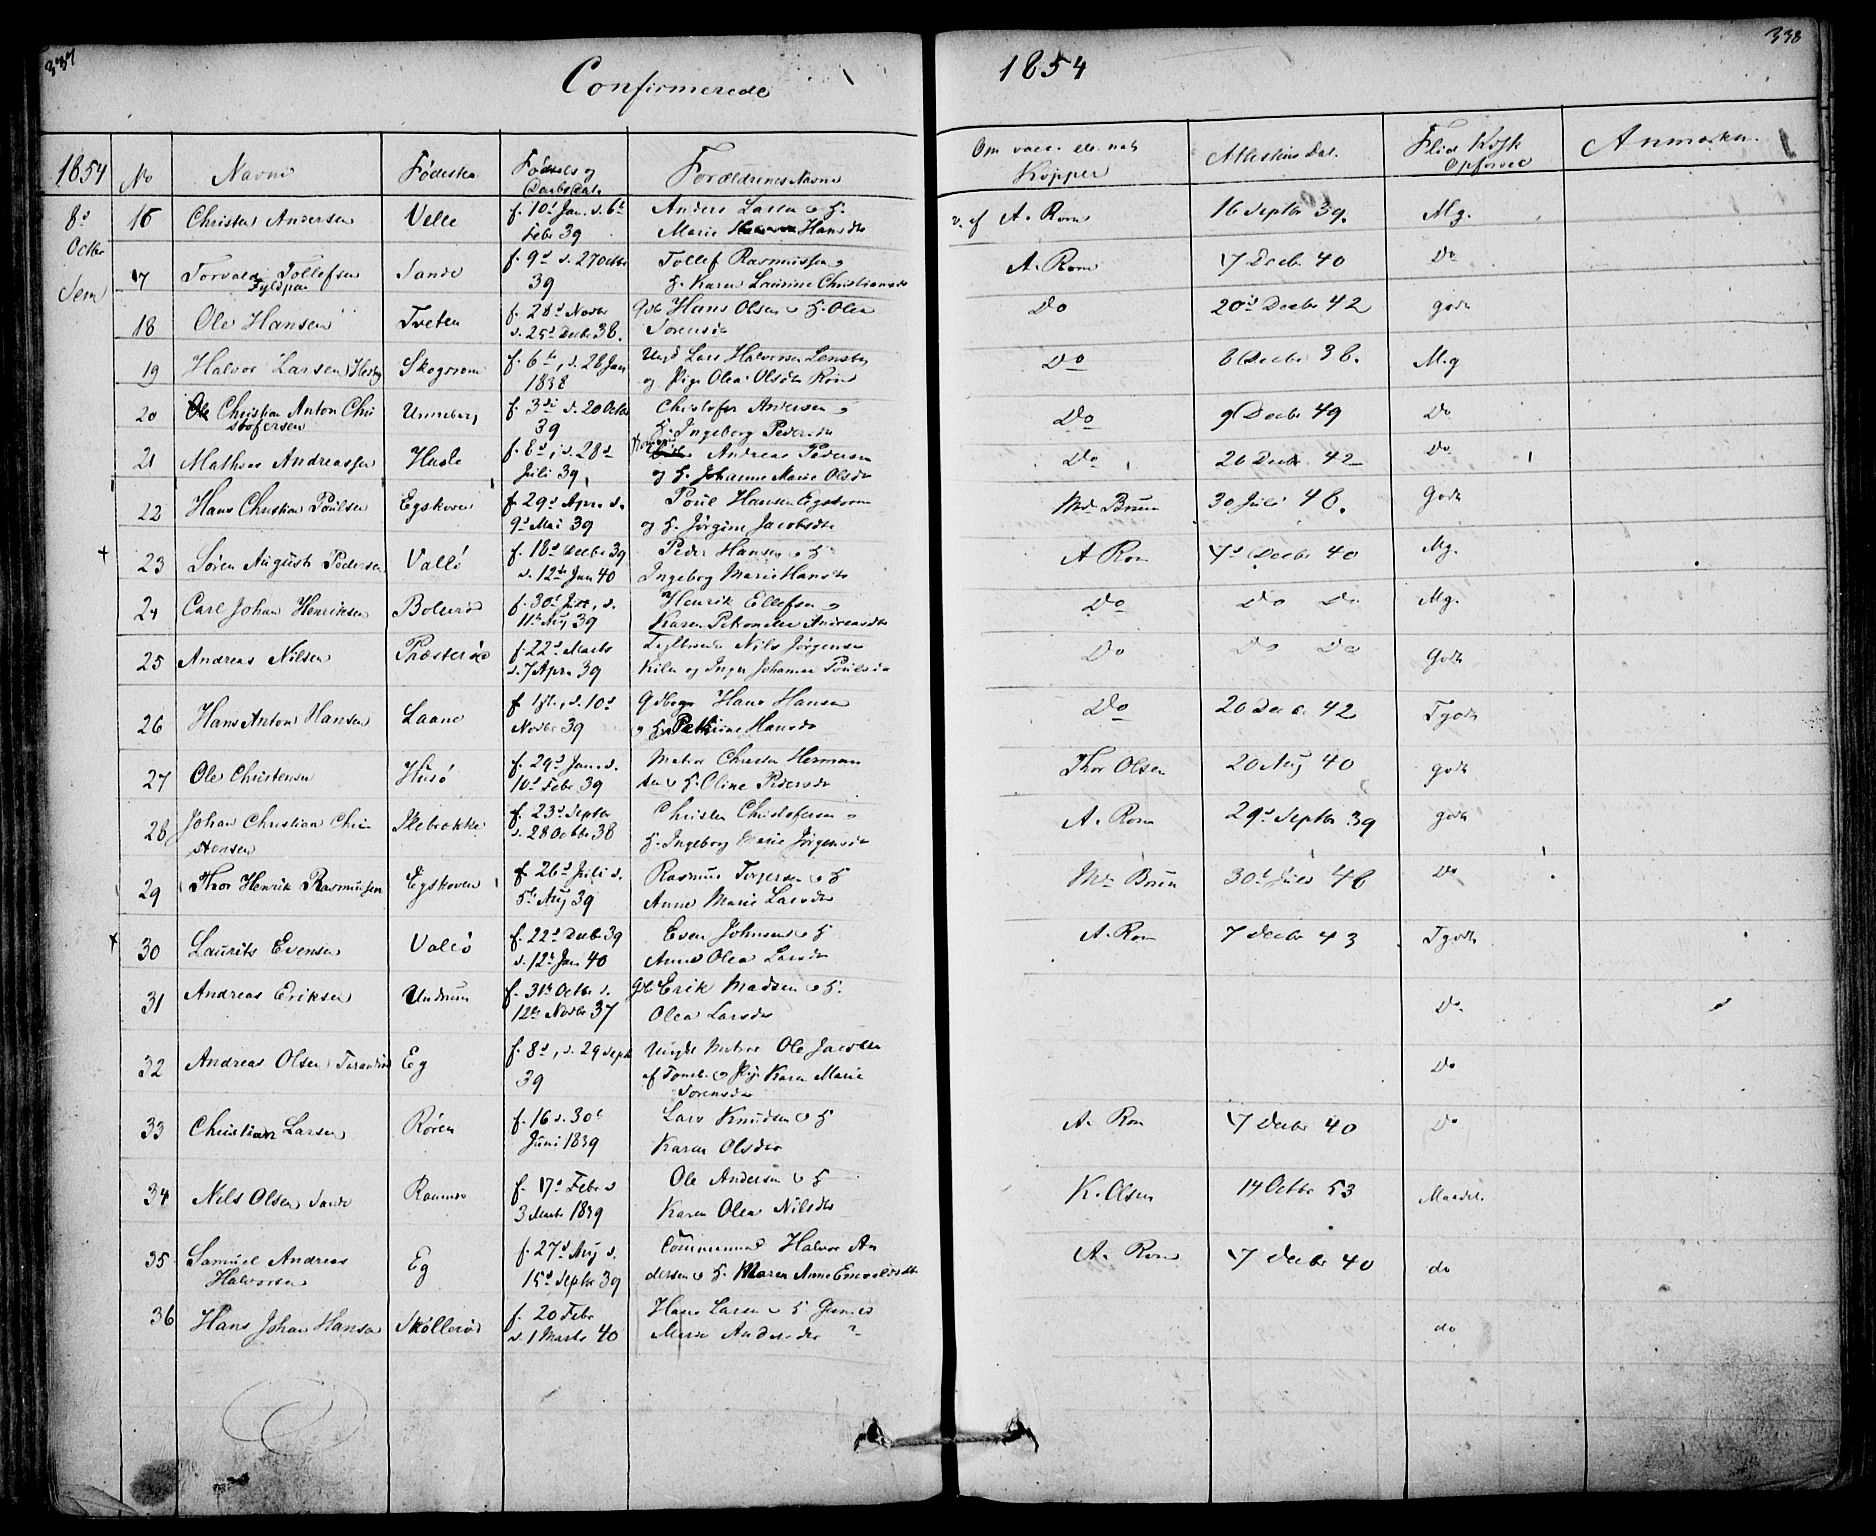 337
Confirmerede
1854
338
1854 No Navn Fødested Fødsels og Daabs Dat. Forældrenes Navne Om vacc. el. nat. Kopper Attestens Dat. Flid Kdsk Opførsel Anmærkn.
8d Octbr Sem
16 Christen Andersen Velle f. 10d Jan. d. 6d Febr 39 Anders Larsen o H. Marie Hansdtr v. af A. Rom 16 Septbr 39. Mg.
17 Torvald Tollefsen Sande f. 9d d. 27 Octbr 39 Tollef Rasmussen o H. Karen Laurine Christiansdr A. Rom 7 Decbr 40 Do
18 Ole Hansen Tveten f. 28d Novbr d. 25d Decbr 38. Gdb Hans Olsen o H. Olea Sorensdr Do 20d Decbr 42 godt
19 Halvor Larsen Skogsrom f. 6te, d. 28 Jan 1838 Ungk Lars Halvorsen og Pige Olea Olsdtr Do 8 Decbr 38. Mg
20 Christian Anton Christofersen Unneberg f. 3di d. 20 Octbr 39 Christofer Andersen o H. Ingeborg Pedersdr Do 9 Decbr 49 Do
21 Mathias Andreassen Hasle f. 8d, d. 28d Juli 39, Andreas Pedersen og H. Johanne Marie Olsdr Do 20 Decbr 42 Do
22 Hans Christian Poulsen Egskoven f. 29d Apr. d. 9d Mai 39 Poul Hansen Egskoven og H. Jørgine Jacobsdtr Md Bruun 30 Juli 48. Godt
+ 23 Søren August Pedersen Vallö f. 18d Decbr 39 d. 12te Jan 40 Peder Hansen o H Ingeborg Marie Hansdtr A Rom 7d Decbr 40 Mg.
24 Carl Johan Henriksen Bolerød f. 30d Juli, d. 11te Aug 39 Henrik Ellefsen o Karen Petronelle Andreasdtr Do Do Do Mg.
25 Andreas Nilsen Præsterød f. 22d Marts d. 7 Apr. 39 Nils Jørgensen og Inger Johanne Poulsdr Do Do Do Godt
26 Hans Anton Hansen Laane f. 1st, d. 10d Novbr 39 Gdbrgr Hans Hansen o H. Pethrine Hansdr Do 20 Decbr 42 Tgodt
27 Ole Christensen Husö f. 29d Jan. d. 10d Febr 39 Matros Christen Hermansen o H. Oline Pedersdtr Thor Olsen 20 Aug 40 godt
28 Johan Christian Christensen Skebrokke f. 23d Septbr d. 28 Octbr 38 Christen Christofersen o H. Ingeborg Marie Jørgensdr A. Rom 29d Septbr 39 godt
29 Thor Henrik Rasmussen Egskoven f. 26d Juli d. 5te Aug 39 Rasmus Torgersen o H Anne Marie Larsdtr Md Bruun 30d Juli 48 Do
+ 30 Laurits Evensen Vallö f. 22d Decbr 39 d. 12te Jan 40 Even Johnsen o H Anne Olea Larsdr A. Rom 7 Decbr 43 Tgodt
31 Andreas Eriksen Undrum f. 31te Octbr d. 12te Novbr 37 Gdb Erik Madsen o H. Olea Larsdr Do.
32 Andreas Olsen Eg f. 8d, d. 29 Septb 39 Ungk Matros Ole Jacobsen af o Pige Karen Marie Sorensdr Do
33 Christian Larsen Røren f. 16 d. 30d Juni 1839 Lars Knudsen o H Karen Olsdtr A. Rom 7 Decbr 40 Do
34 Nels Olsen Sande Ramnes f. 17d Febr d 3 Marts 1839 Ole Andersen o H Karen Olea Nilsdtr K. Olsen 14 Octbr 53 Maadel.
35 Samuel Andreas Halvorsen Eg f. 27d Aug d. 15d Septbr 39 Halvor Andersen o H. Maren Anne Enevoldsdtr A. Rom 7 Decbr 40 do
36 Hans Johan Hansen Skøllerød f. 20 Febr d. 1 Marts 40 Hans Larsen o H. Marie Andersdr do